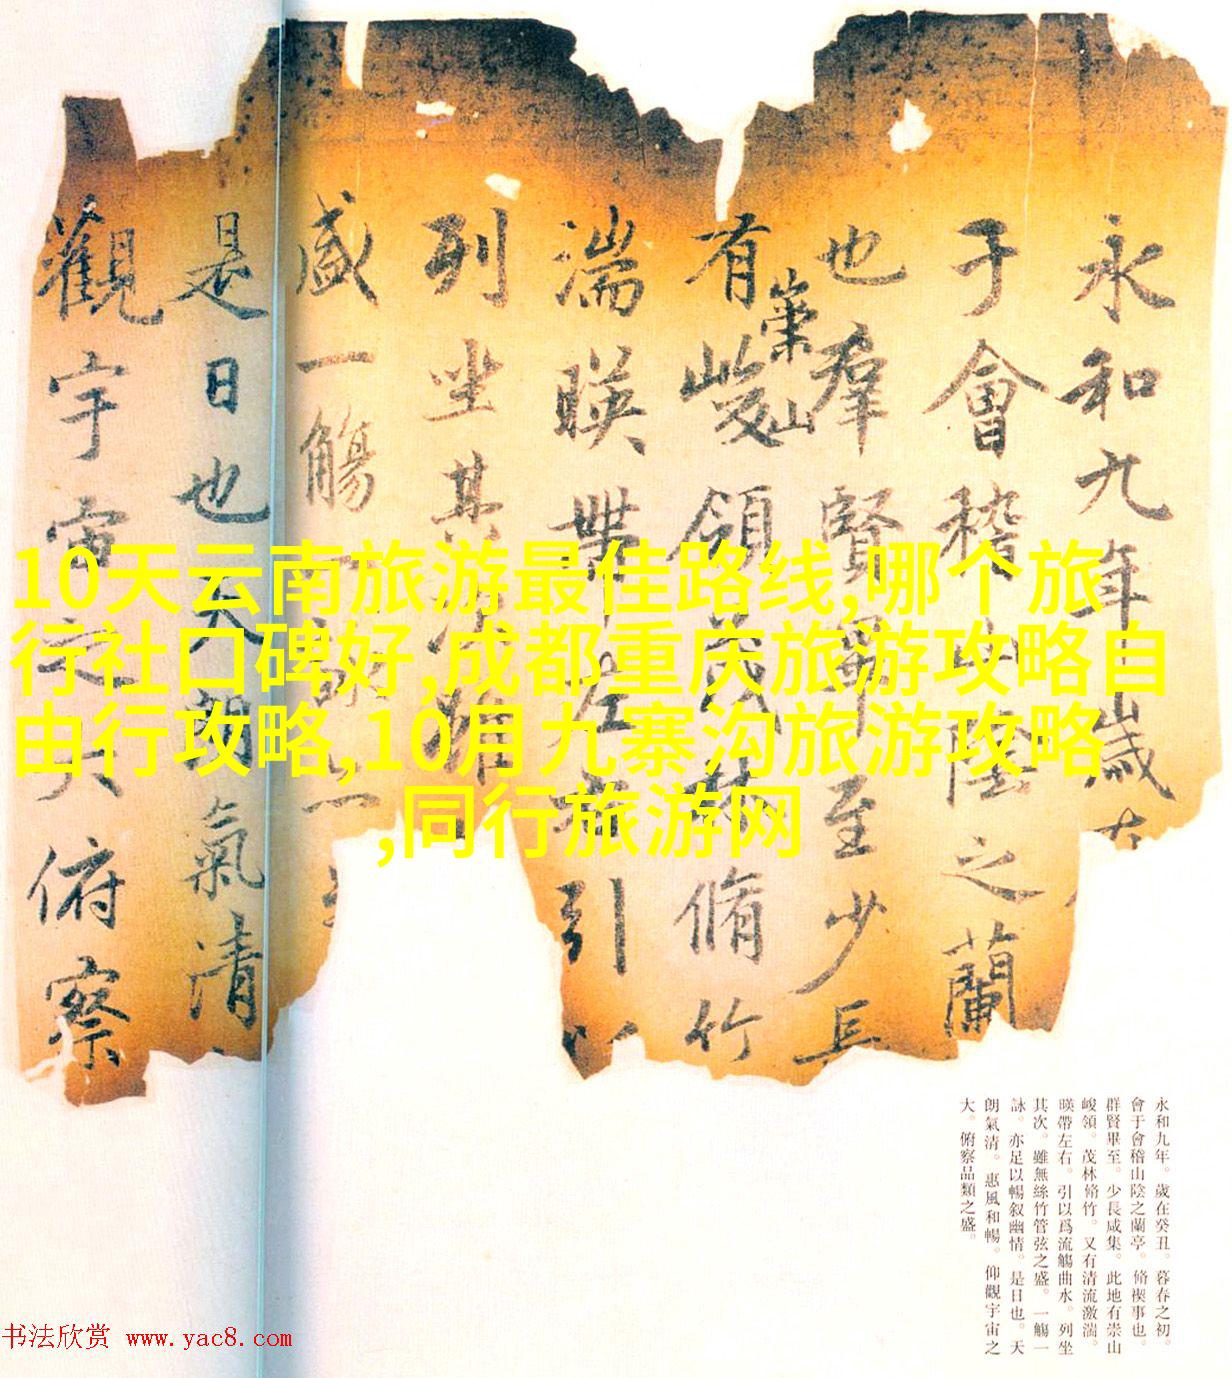 永和九年歲在
于會稽山陰之蘭
也羣賢畢至少長
有崇山峻領茂林脩竹
湍暎帶左右引以
列坐其次雖
盛一觴一詠亦
是日也天朗氣清
觀宇宙之大俯察
10天云南旅游最佳路线,哪个旅
行社口碑好,成都重庆旅游攻略自
由行攻略,10月九寨沟旅游攻略
,同行旅游网
永和九年。歲在癸丑。暮春之初。
會于會稽山陰之蘭亭。脩禊事也。
群賢畢至。少長咸集。此地有崇山
峻領。茂林脩竹。又有清流激湍。
暎帶左右。引以爲流觴曲水。列坐
其次。雖無絲竹管弦之盛。一觴一
詠。亦足以暢叙幽情。是日也。天
朗氣清。惠風和暢。仰觀宇宙之
大。俯察品類之盛。
书法欣赏 www.yac8.com